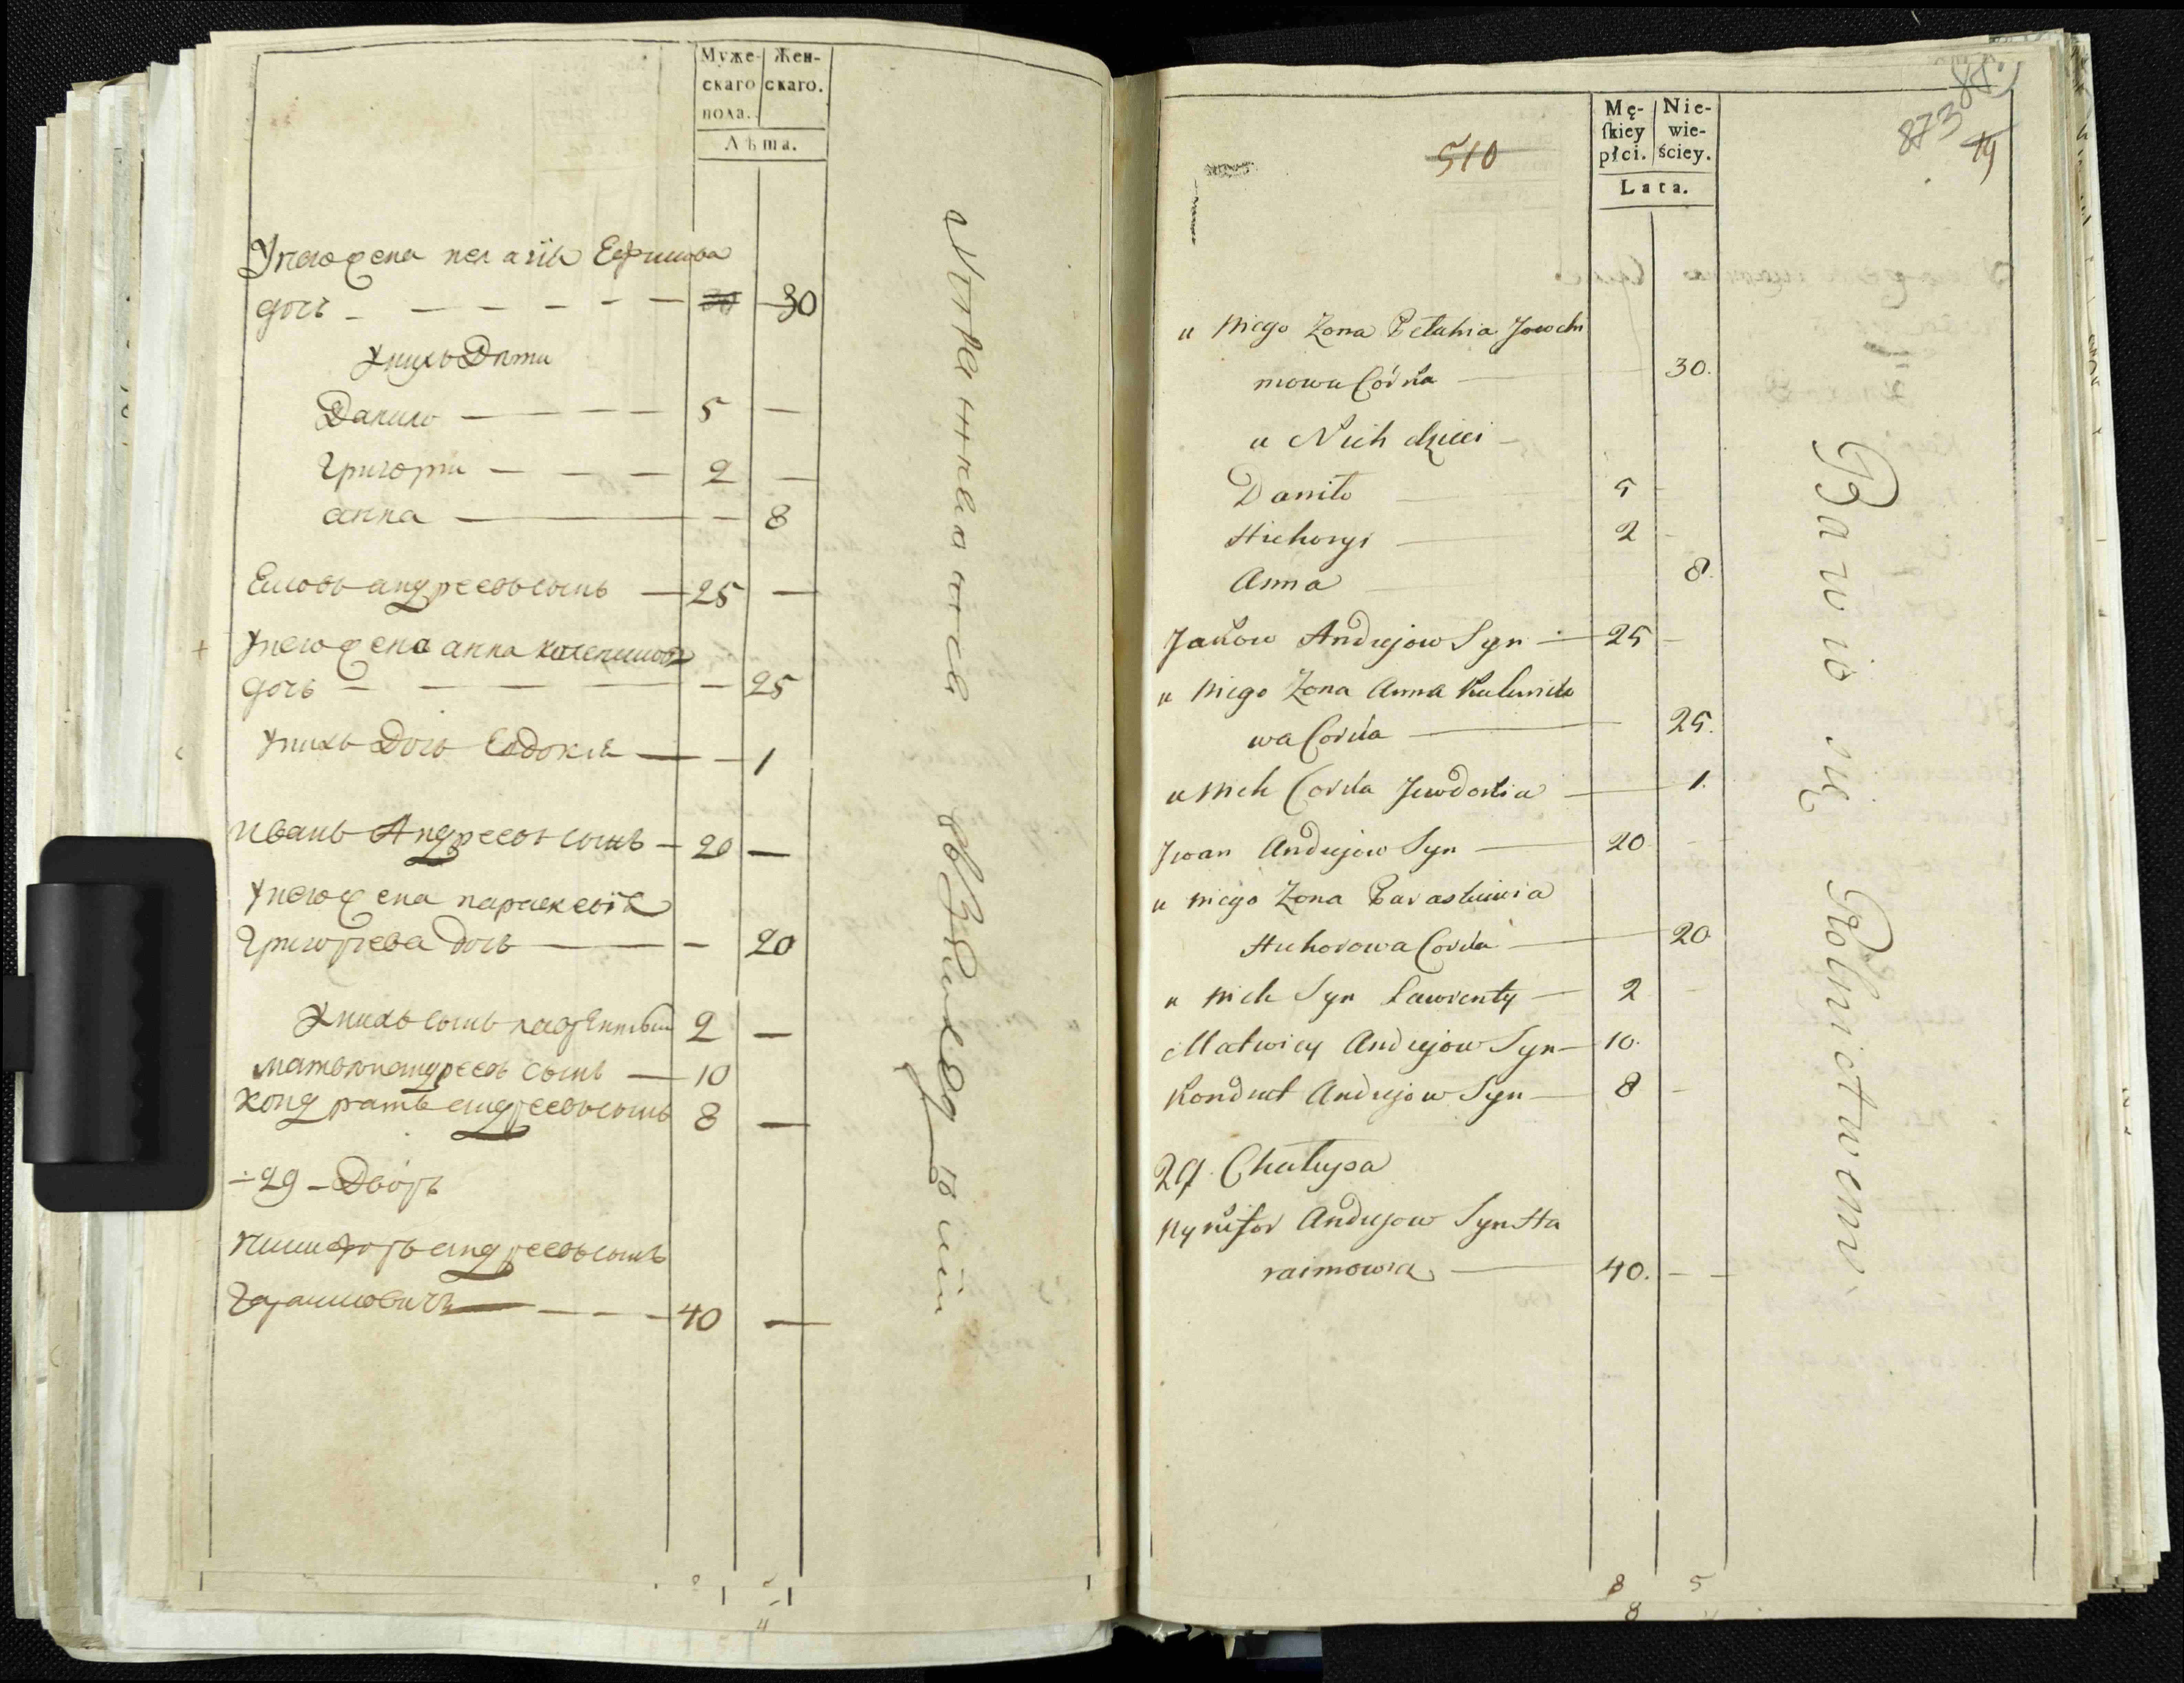 Муже- Жен-
скаго скаго.
пола.
Лѣта.
Унего жена пелагія Ефимова
дочь 30 30
Унихъ Дѣти
Данило 5
Григори 2
анна 8
андреевъ сынъ 25
Унего жена анна
дочь 25
Унихъ Дочь Евдокия 1
Иванъ Андреевъ сынъ 20
Унего жена параскевія
Григорьева дочь 20
Унихъ сынъ 2
андреевъ сынъ 10
Кондратъ андреевъ сынъ 8
29 Дворъ
андреевъ сынъ
Гараимовичъ 40
4
Mę- Nie-
skiey wie-
płci. ściey.
Lata.
510
873
85.
19
u Niego Żona Pelahia Jowchi
mowa Córka 30.
u Nich dzieci
Daniło 5
Hrehory 2
Anna 8.
Jakow Andrejow Syn 25
u Niego Żona Anna
wa Corka 25.
u Nich Corka Jewdokia 1.
Jwan Andrejow Syn 20
u niego Żona Paraskiewia
Hrehorowa Corka 20
u Nich Syn Ławrenty 2
Matwiey Andrejow Syn 10.
Kondrat Andrejow Syn 8
29. Chałupa
Nykifor Andrejow Syn Ha
raimowicz 40.
8 5
8
Bawio się Rolnictwem